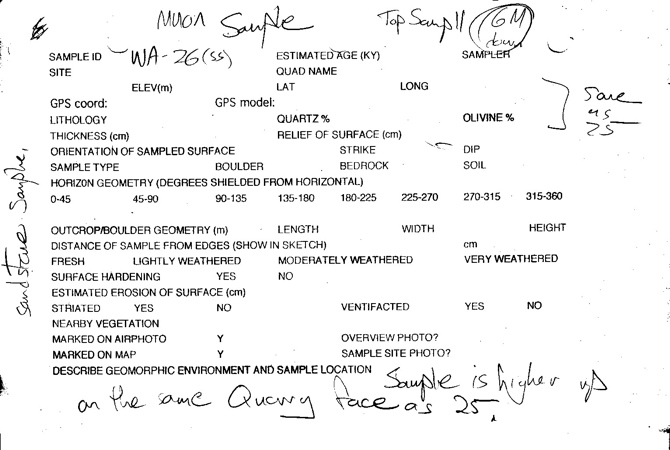 Muon Sample Top Sampll 6M
down
SAMPLE ID WA-26(SS) ESTIMATED AGE (KY) SAMPLER
SITE QUAD NAME
ELEV(m) LAT LONG
GPS coord: GPS model:
LITHOLOGY QUARTZ % OLIVINE %
Same
as
25
THICKNESS (cm) RELIEF OF SURFACE (cm)
ORIENTATION OF SAMPLED SURFACE STRIKE DIP
SAMPLE TYPE BOULDER BEDROCK SOIL
HORIZON GEOMETRY (DEGREES SHIELDED FROM HORIZONTAL)
0-45 45-90 90-135 135-180 180-225 225-270 270-315 315-360
OUTCROP/BOULDER GEOMETRY (m) LENGTH WIDTH HEIGHT
DISTANCE OF SAMPLE FROM EDGES (SHOW IN SKETCH) cm
FRESH LIGHTLY WEATHERED MODERATELY WEATHERED VERY WEATHERED
SURFACE HARDENING YES NO
ESTIMATED EROSION OF SURFACE (cm)
STRIATED YES NO VENTIFACTED YES NO
NEARBY VEGETATION
MARKED ON AIRPHOTO Y OVERVIEW PHOTO?
MARKED ON MAP Y SAMPLE SITE PHOTO?
DESCRIBE GEOMORPHIC ENVIRONMENT AND SAMPLE LOCATION
Sample is higher up
on the same Quarry face as 25.
Sandstone Sample,